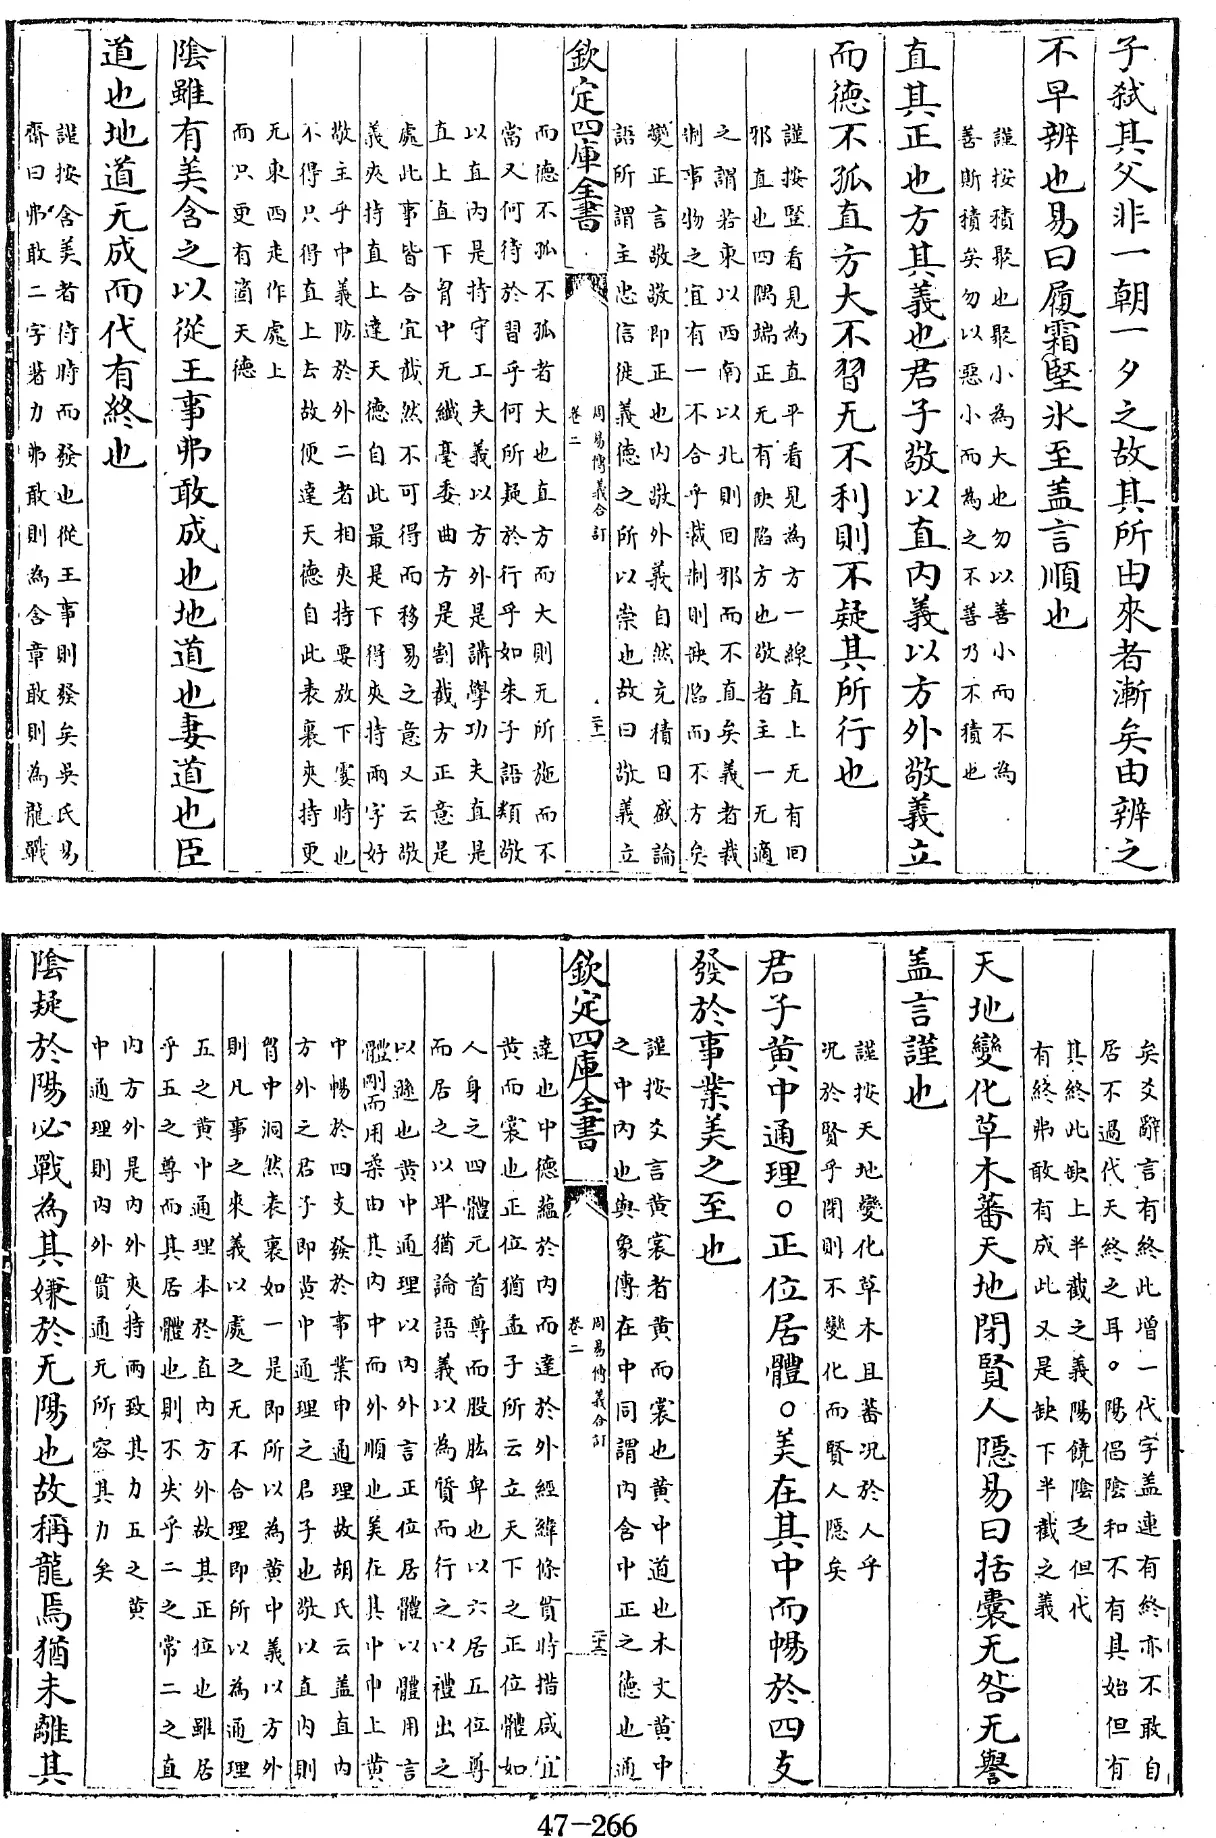 子弑其父非一朝一夕之故其所由來者漸矣由辨之
不早辨也易曰履霜堅氷至盖言順也
謹按積聚也聚小為大也勿以善小而不為
善斯積矣勿以惡小而為之不善乃不積也
直其正也方其義也君子敬以直内義以方外敬義立
而德不孤直方大不習无不利則不疑其所行也
謹按竪看見為直平看見為方一線直上无有回
邪直也四隅端正无有缺陷方也敬者主一无適
之謂若東以西南以北則回邪而不直矣義者裁
制事物之宜有一不合乎裁制則缺陷而不方矣
變正言敬敬即正也内敬外義自然充積日盛論
語所謂主忠信徙義德之所以崇也故曰敬義立
欽定四庫全書
周易傳義合訂
卷二
二十一
而德不孤不孤者大也直方而大則无所施而不
當又何待於習乎何所疑於行乎如朱子語類敬
以直内是持守工夫義以方外是講學功夫直是
直上直下胷中无纎毫委曲方是割截方正意是
處此事皆合宜截然不可得而移易之意又云敬
義夾持直上達天德自此最是下得夾持兩字好
敬主乎中義防於外二者相夾持要放下霎時也
不得只得直上去故便達天德自此表裏夾持更
无東西走作處上
而只更有箇天德
陰雖有美含之以從王事弗敢成也地道也妻道也臣
道也地道无成而代有終也
謹按含美者待時而發也從王事則發矣吳氏易
齋曰弗敢二字著力弗敢則為含章敢則為龍戰
矣爻辭言有終此增一代字盖連有終亦不敢自
居不過代天終之耳。陽倡隂和不有其始但有
其終此缺上半截之義陽饒隂乏但代
有終弗敢有成此又是缺下半截之義
天地變化草木蕃天地閉賢人隱易曰括囊无咎无譽
盖言謹也
謹按天地變化草木且蕃况於人乎
况於賢乎閉則不變化而賢人隱矣
君子黄中通理。正位居體。美在其中而暢於四支
發於事業美之至也
謹按爻言黄裳者黄而裳也黄中道也本文黄中
之中内也與象傳在中同謂内含中正之德也通
欽定四庫全書
周易傳義合訂
卷二
二十二
達也中德藴於内而達於外經緯條貫時措咸宜
黄而裳也正位猶孟子所云立天下之正位體如
人身之四體元首尊而股肱卑也以六居五位尊
而居之以卑猶論語義以為質而行之以禮出之
以遜也黄中通理以内外言正位居體以體用言
體剛而用柔由其内中而外順也美在其中中上黄
中暢於四支發於事業中通理故胡氏云盖直内
方外之君子即黄中通理之君子也敬以直内則
胷中洞然表裏如一是即所以為黄中義以方外
則凡事之來義以處之无不合理即所以為通理
五之黄中通理本於直内方外故其正位也雖居
乎五之尊而其居體也則不失乎二之常二之直
内方外是内外夾持兩致其力五之黄
中通理則内外貫通无所容其力矣
陰疑於陽必戰為其嫌於无陽也故稱龍焉猶未離其
47-266